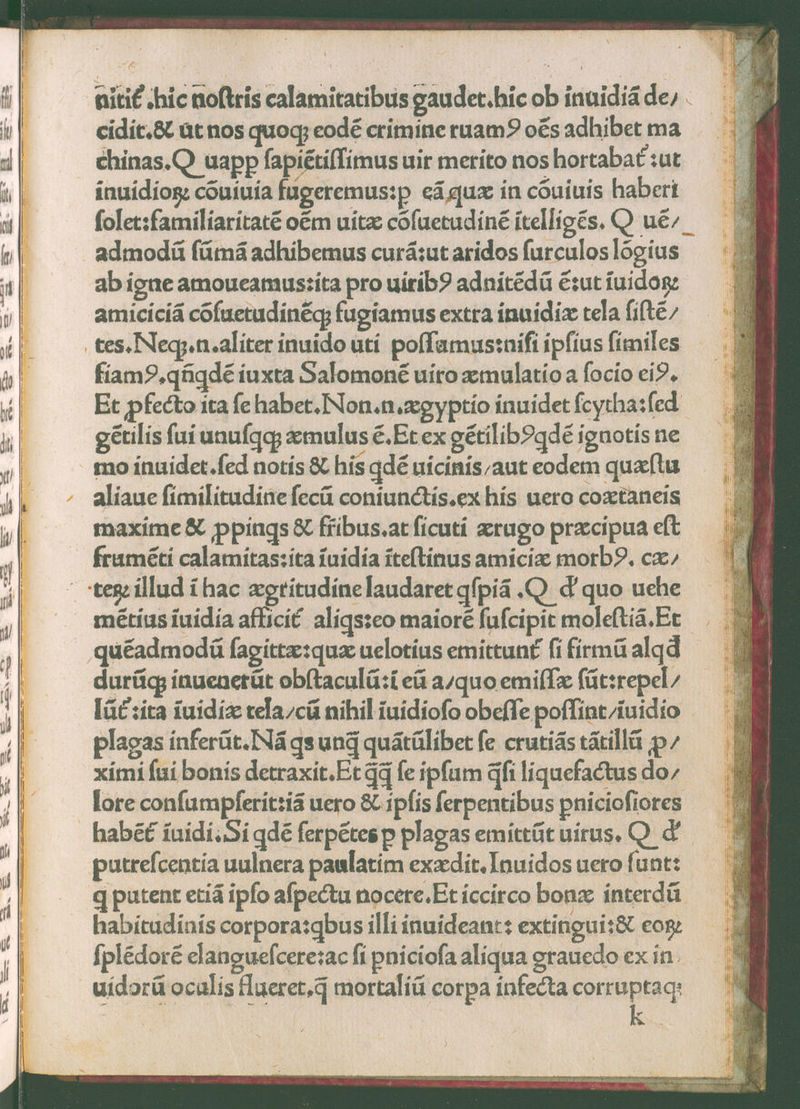 nitiť.hic noſtris calamitatibus gaudet.hic ob inuidiā de/
cidit.& ut nos quoqꝫ eodē crimine ruamꝰ oēs adhibet ma
chinas.Q uapp ſapiētiſſimus uir merito nos hortabať:ut
inuidioꝝ cōuiuia fugeremus:p eāꝗuæ in cōuiuis haberi
ſolet:familiaritatē oēm uitæ cōſuetudinē ītelligēs. Q uē/
admodū ſūmā adhibemus curā:ut aridos ſurculos lōgius
ab igne amoueamus:ita pro uiribꝰ adnitēdū ē:ut iuidoꝝ
amiciciā cōſuetudinēqꝫ fugiamus extra inuidiæ tela ſiſtē/
tes.Neqꝫ.n.aliter inuido uti poſſumus:niſi ipſius ſimiles
fiamꝰ.qñqdē iuxta Salomonē uiro æmulatio a ſocio eiꝰ.
Et ꝓfecto ita ſe habet.Non.n.ægyptio inuidet ſcytha:ſed
gētilis ſui unuſqqꝫ æmulus ē.Et ex gētilibꝰqdē ignotis ne
mo inuidet.ſed notis & his qdē uicinis/aut eodem quæſtu
aliaue ſimilitudine ſecū coniunctis.ex his uero coætaneis
maxime & ꝓpinqs & fr̄ibus.at ſicuti ærugo præcipua eſt
frumēti calamitas:ita iuidia īteſtinus amiciæ morbꝰ. cæ/
teꝝ illud ī hac ægritudine laudaret qſpiā .Q d' quo uehe
mētius iuidia afficiť aliqs:eo maiorē ſuſcipit moleſtiā.Et
quēadmodū ſagittæ:quæ uelotius emittunť ſi firmū alqd
durūqꝫ inuenerūt obſtaculū:ī eū a/quo emiſſæ ſūt:repel/
lūť:ita iuidiæ tela/cū nihil iuidioſo obeſſe poſſint/iuidio
plagas inferūt.Nā qs unq̄ quātūlibet ſe crutiās tātillū ꝓ/
ximi ſui bonis detraxit.Et q̄q̄ ſe ipſum q̄ſi liquefactus do/
lore conſumpſerit:iā uero & ipſis ſerpentibus pnicioſiores
habēť iuidi.Si qdē ſerpētes p plagas emittūt uirus. Q d'
putreſcentia uulnera paulatim exædit.Inuidos uero ſunt:
q putent etiā ipſo aſpectu nocere.Et iccirco bonæ interdū
habitudinis corpora:qbus illi inuideant: extingui:& eoꝝ
ſplēdorē elangueſcere:ac ſi pnicioſa aliqua grauedo ex in
uidorū oculis flueret,q̄ mortaliū corpa infecta corruptaqꝫ
k